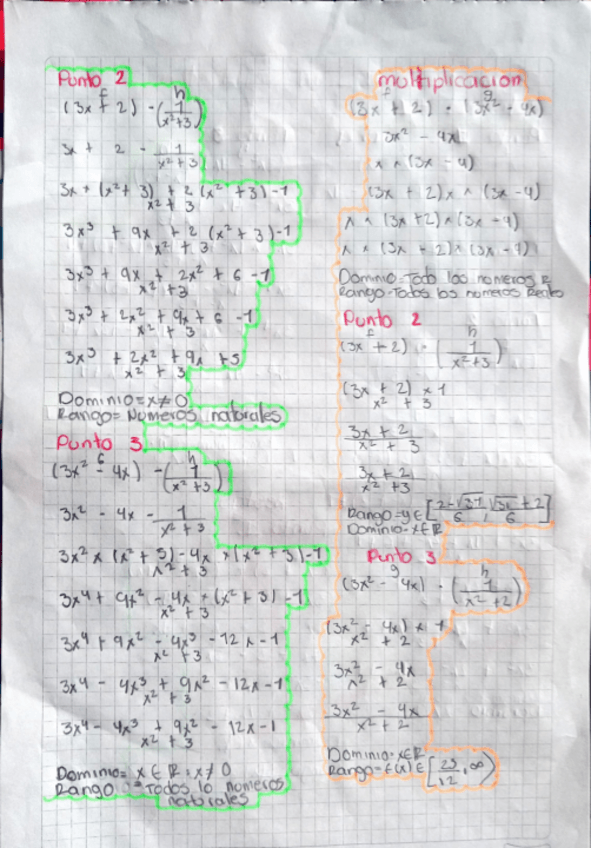 Punto 2
f h
(3x + 2) - (1/x²+3)
3x + 2 - 1/x²+3
3x × (x²+ 3) + 2 (x² + 3) -1
x² + 3
3x³ + 9x + 2 (x² + 3) -1
x² + 3
3x³ + 9x + 2x² + 6 -1
x²+3
3x³ + 2x² + 9x + 6 -1
x² + 3
3x³ + 2x² + 9x + 5
x² + 3
Dominio = x≠0
Rango = Numeros naturales
Punto 3
h
(3x² - 4x) - (1/(x²+3))
3x² - 4x - 1/x²+3
3x² x (x² + 3) - 4x × (x² + 3) -1
x² + 3
3x⁴ + 9x² - 4x × (x² + 3) -1
x² + 3
3x⁴ + 9x² - 4x³ - 12x -1
x² + 3
3x⁴ - 4x³ + 9x² - 12x -1
x² + 3
3x⁴ - 4x³ + 9x² - 12x -1
x² + 3
Dominio = x ∈ R : x≠0
Rango = Todos lo numeros
naturales
multiplicacion
f g
(3x + 2) · (3x² - 4x)
3x² - 4x
x × (3x - 4)
(3x + 2) x × (3x - 4)
x × (3x +2) × (3x - 4)
x × (3x + 2) × (3x - 4)
Dominio = Todo los numeros R
Rango = Todos los numeros Reales
Punto 2
f h
(3x + 2) · (1/x²+3)
(3x + 2) × 1
x² + 3
3x + 2
x² + 3
3x + 2
x² + 3
Dominio = x∈R
Punto 3
g h
(3x² - 4x) · (1/x²+2)
(3x² - 4x) × 1
x² + 2
3x² - 4x
x² + 2
3x² - 4x
x² + 2
Dominio = x∈R